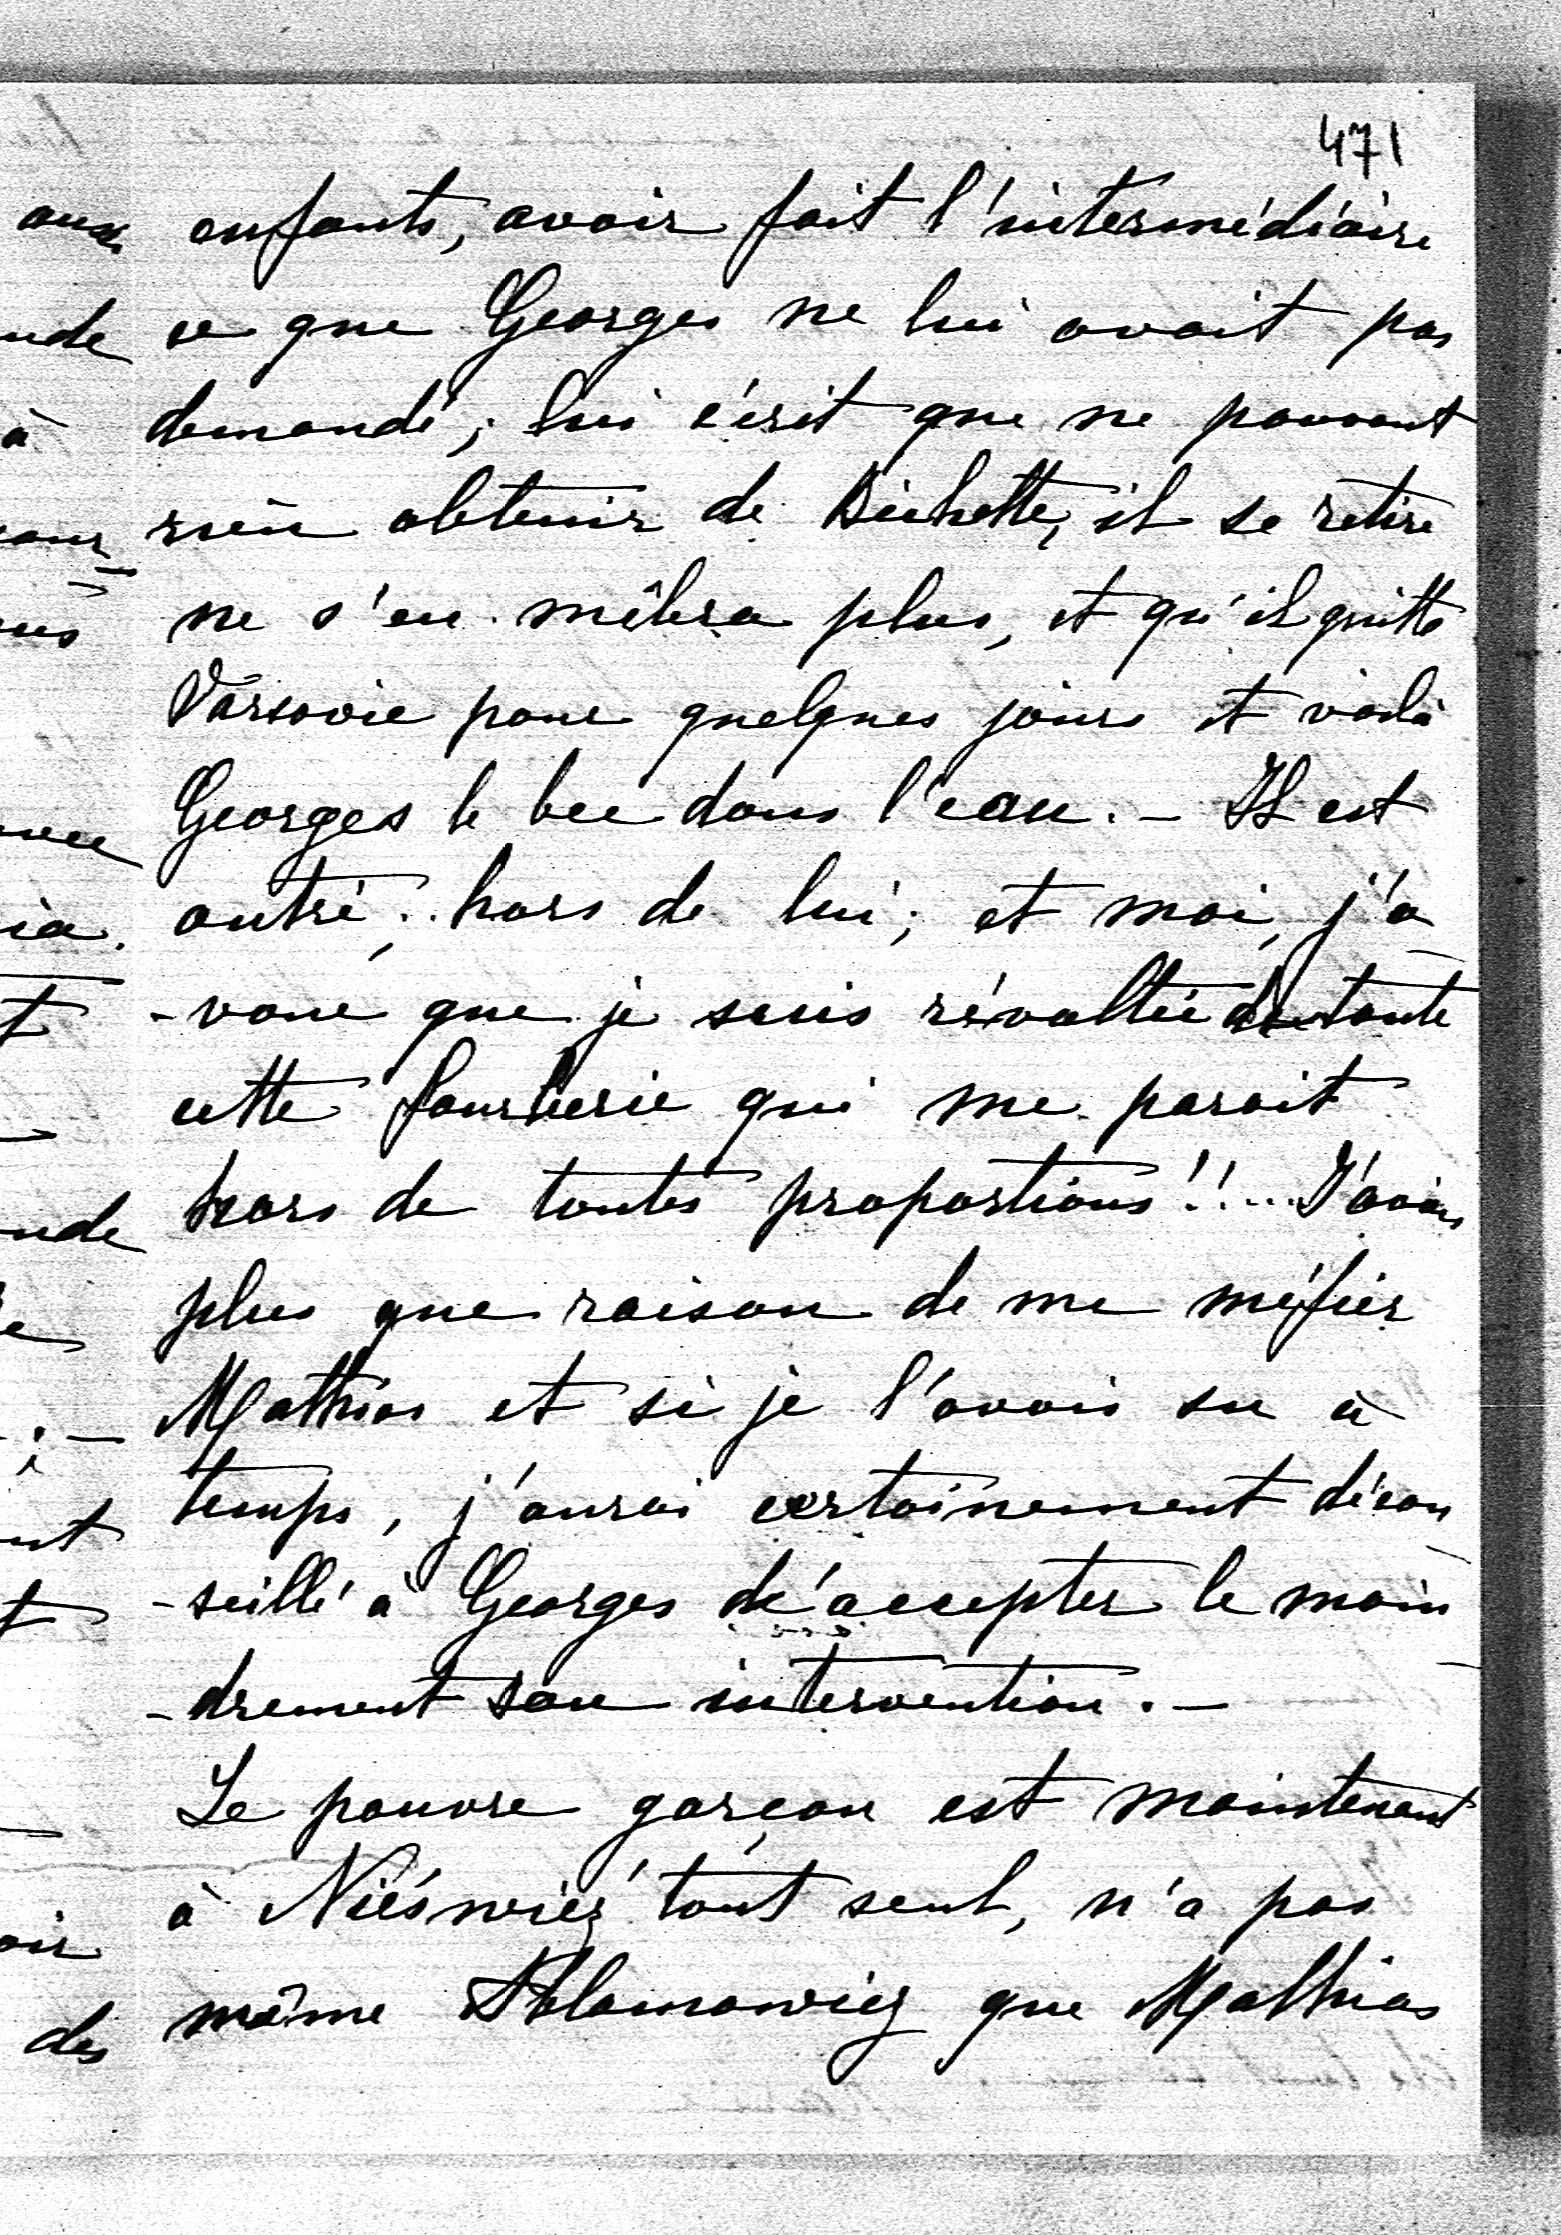 471
enfants, avoir fait l'intermédiaire
ce que Georges ne lui avait pas
demandé; lui écrit que ne pouvant
rien obtenir de Bichette, il se retire
ne s'en mêlera plus, et qu'il quitte
Varsovie pour quelques jours et voilà
Georges le bec dans l'eau. – Il est
outré, hors de lui; et moi, j'a
-voue que je suis révoltée de toute
cette fourberie qui me parait
hors de toutes proportions!!... J'avais
plus que raison de me méfier
Mathias et si je l'avais su à
temps, j'aurai certainement décon
-seillé à Georges d'accepter le moin
-drement son intervention. –
Le pauvre garçon est maintenant
à Nieświéz tout seul, n'a pas
même que Mathias